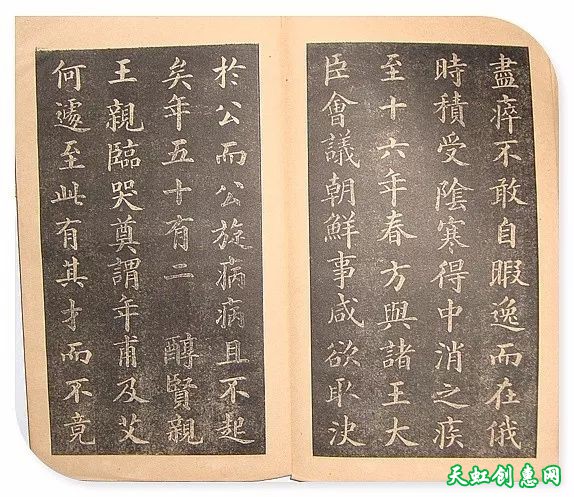 盡瘁不敢自暇逸而在俄
時積受陰寒得中消之疾
至十六年春方與諸王大
臣會議朝鮮事咸欲取決
於公而公旋病病且不起
矣年五十有二 醇賢親
王親臨哭奠謂年甫及艾
何遽至此有其才而不竟
天虹创意网